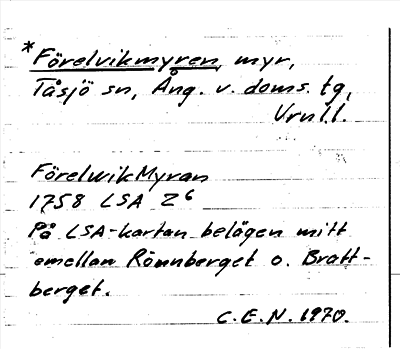 *Förelvikmyren, myr,
Tåsjö sn, Ång. v. doms. tg,
Urnll.
FörelwikMyran
1758 LSA Z6
På LSA-kartan belägen mitt
emellan Rönnberget o. Bratt-
berget.
C.E.N. 1970.